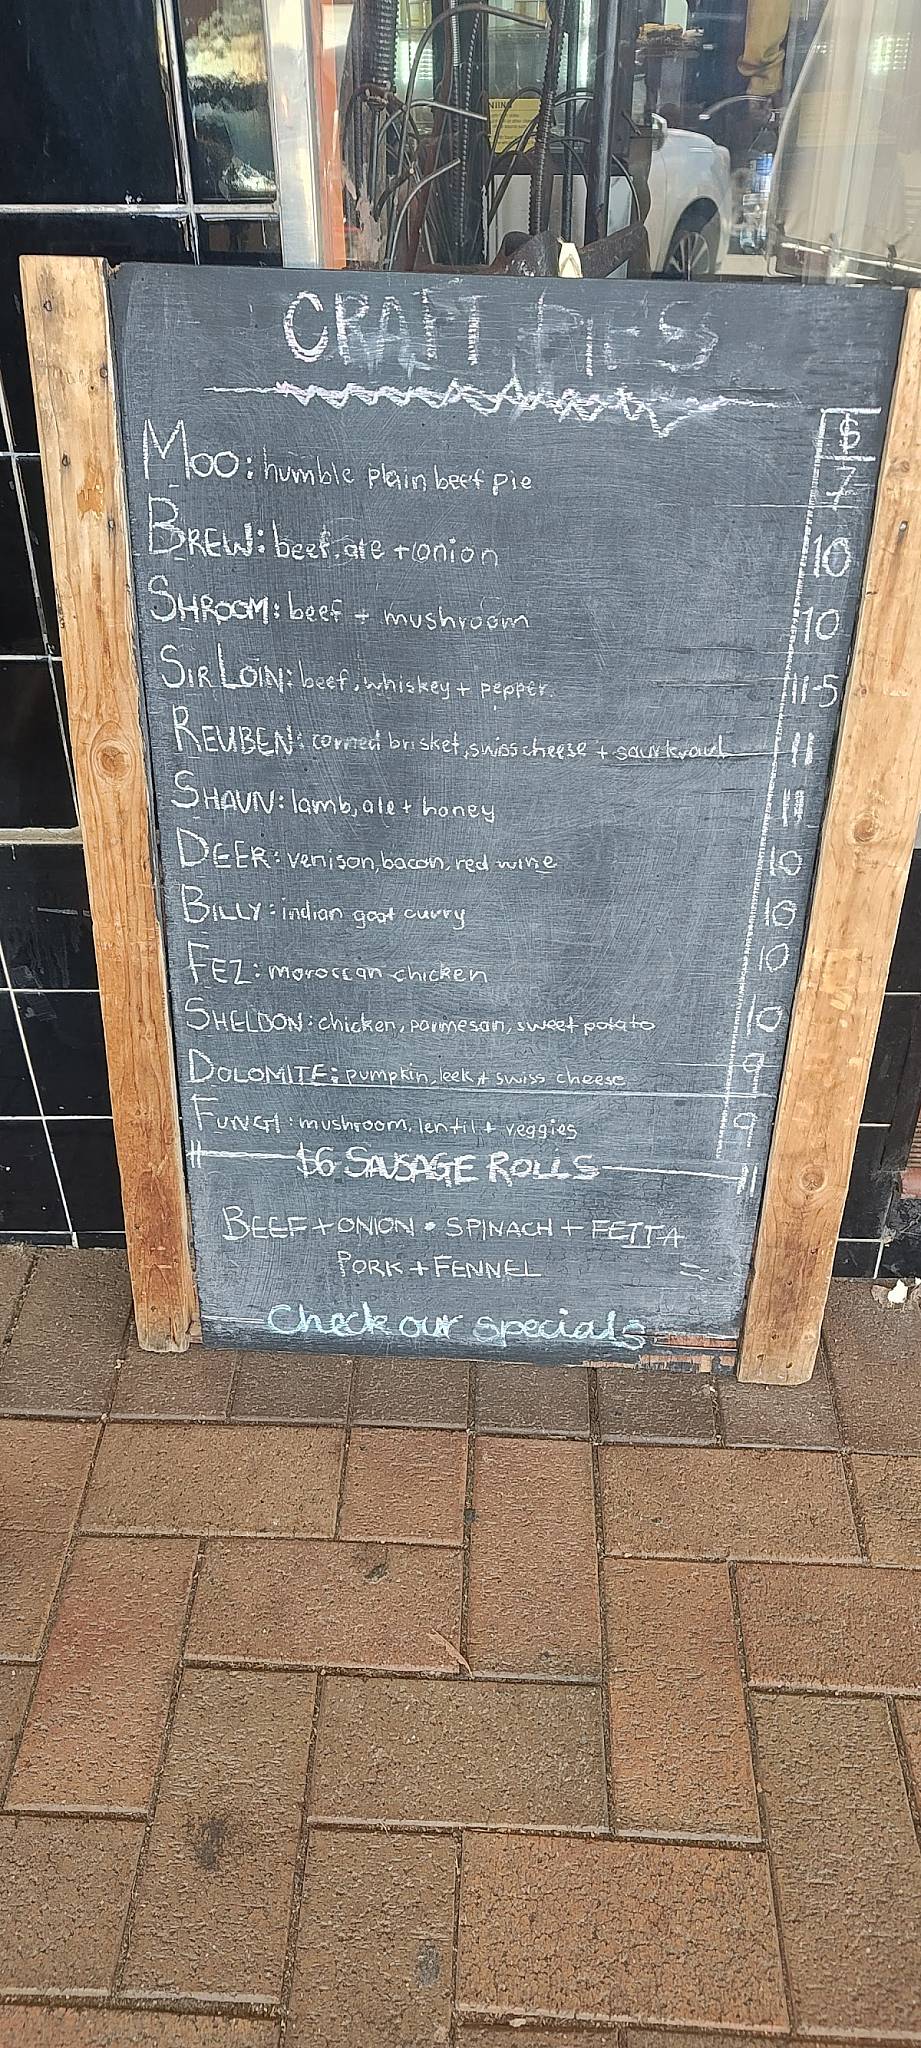 CRAFT PIES
$
MOO: humble plain beef pie 7
BREW: beef, ale + onion 10
SHROOM: beef + mushroom 10
SIR LOIN: beef, whiskey + pepper 11.5
REUBEN: corned brisket, swiss cheese + saurkraut 11
SHAUN: lamb, ale + honey 11
DEER: venison, bacon, red wine 10
BILLY: indian goat curry 10
FEZ: moroccan chicken 10
SHELDON: chicken, parmesan, sweet potato 10
DOLOMITE: pumpkin, leek + swiss cheese 9
FUNGI: mushroom, lentil + veggies 9
$6 SAUSAGE ROLLS
BEEF + ONION • SPINACH + FETTA
PORK + FENNEL
Check our specials